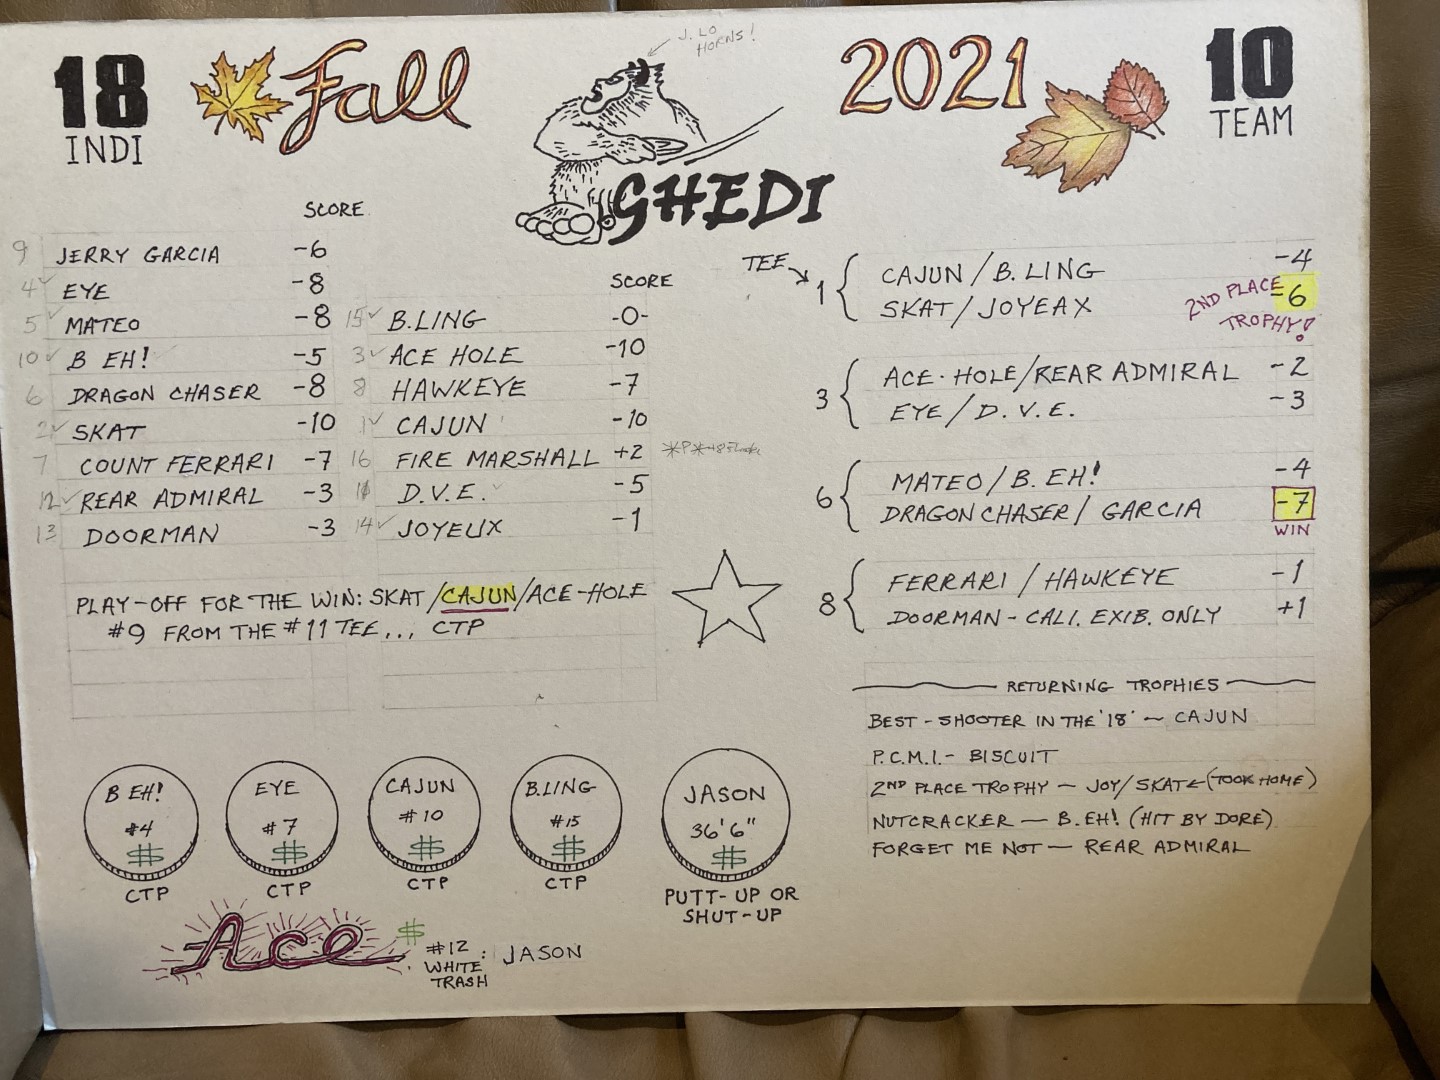 18
INDI
Fall
J. LO
HORNS!
GHEDI
2021
10
TEAM
SCORE
9 JERRY GARCIA -6
4 EYE -8
5 MATEO -8
10 B EH! -5
6 DRAGON CHASER -8
2 SKAT -10
7 COUNT FERRARI -7
12 REAR ADMIRAL -3
13 DOORMAN -3
SCORE
15 B.LING -0-
3 ACE HOLE -10
8 HAWKEYE -7
1 CAJUN -10
16 FIRE MARSHALL +2
D.V.E. -5
14 JOYEUX -1
PLAY-OFF FOR THE WIN: SKAT/CAJUN/ACE-HOLE
#9 FROM THE #11 TEE... CTP
TEE
1 { CAJUN/B.LING -4
SKAT/JOYEAX -6
2ND PLACE
TROPHY!
3 { ACE-HOLE/REAR ADMIRAL -2
EYE/D.V.E. -3
6 { MATEO/B.EH! -4
DRAGON CHASER/GARCIA -7
WIN
8 { FERRARI/HAWKEYE -1
DOORMAN - CALI. EXIB. ONLY +1
RETURNING TROPHIES
BEST-SHOOTER IN THE '18' ~ CAJUN
P.C.M.I.- BISCUIT
2ND PLACE TROPHY - JOY/SKAT ← (TOOK HOME)
NUTCRACKER - B.EH! (HIT BY DORE)
FORGET ME NOT - REAR ADMIRAL
B EH!
#4
$
CTP
EYE
#7
$
CTP
CAJUN
#10
$
CTP
B.LING
#15
$
CTP
JASON
36'6"
$
PUTT-UP OR
SHUT-UP
Ace $
#12 : JASON
WHITE
TRASH